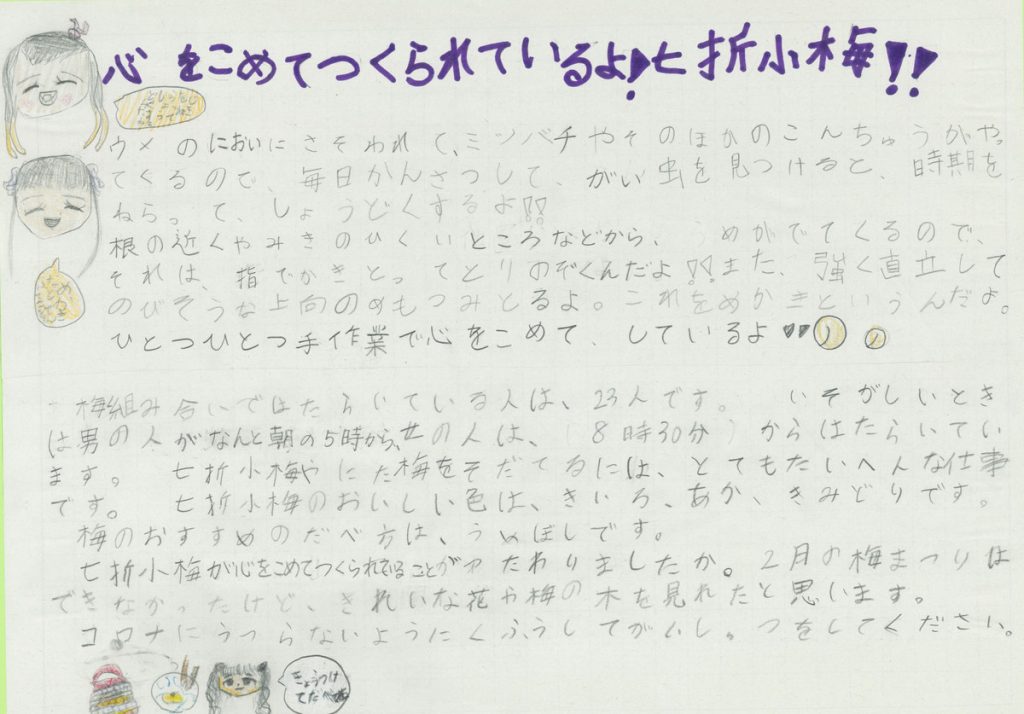 心をこめてつくられているよ!七折小梅!!
ウメのにおいにさそわれて、ミツバチやそのほかのこんちゅうがやっ
てくるので、毎日かんさつして、がい虫を見つけると、時期を
ねらって、しょうどくするよ!!
根の近くやみきのひくいところなどから、うめがでてくるので、
それは、指でかきとってとりのぞくんだよ!!また、強く直立して
のびそうな上向のめもつみとるよ。これをめかきというんだよ。
ひとつひとつ手作業で心をこめて、しているよ!!
梅組み合いではたらいている人は、23人です。 いそがしいとき
は男の人がなんと朝の5時から、女の人は、(8時30分)からはたらいてい
ます。 七折小梅やにた梅をそだてるには、とてもたいへんな仕事
です。 七折小梅のおいしい色は、きいろ、あか、きみどりです。
梅のおすすめのたべ方は、うめぼしです。
七折小梅が心をこめてつくられていることがつたわりましたか。2月の梅まつりは
できなかったけど、きれいな花や梅の木を見れたと思います。
コロナにうつらないようにくふうしてがいしゅつをしてください。
きょうつけ
てたべてね